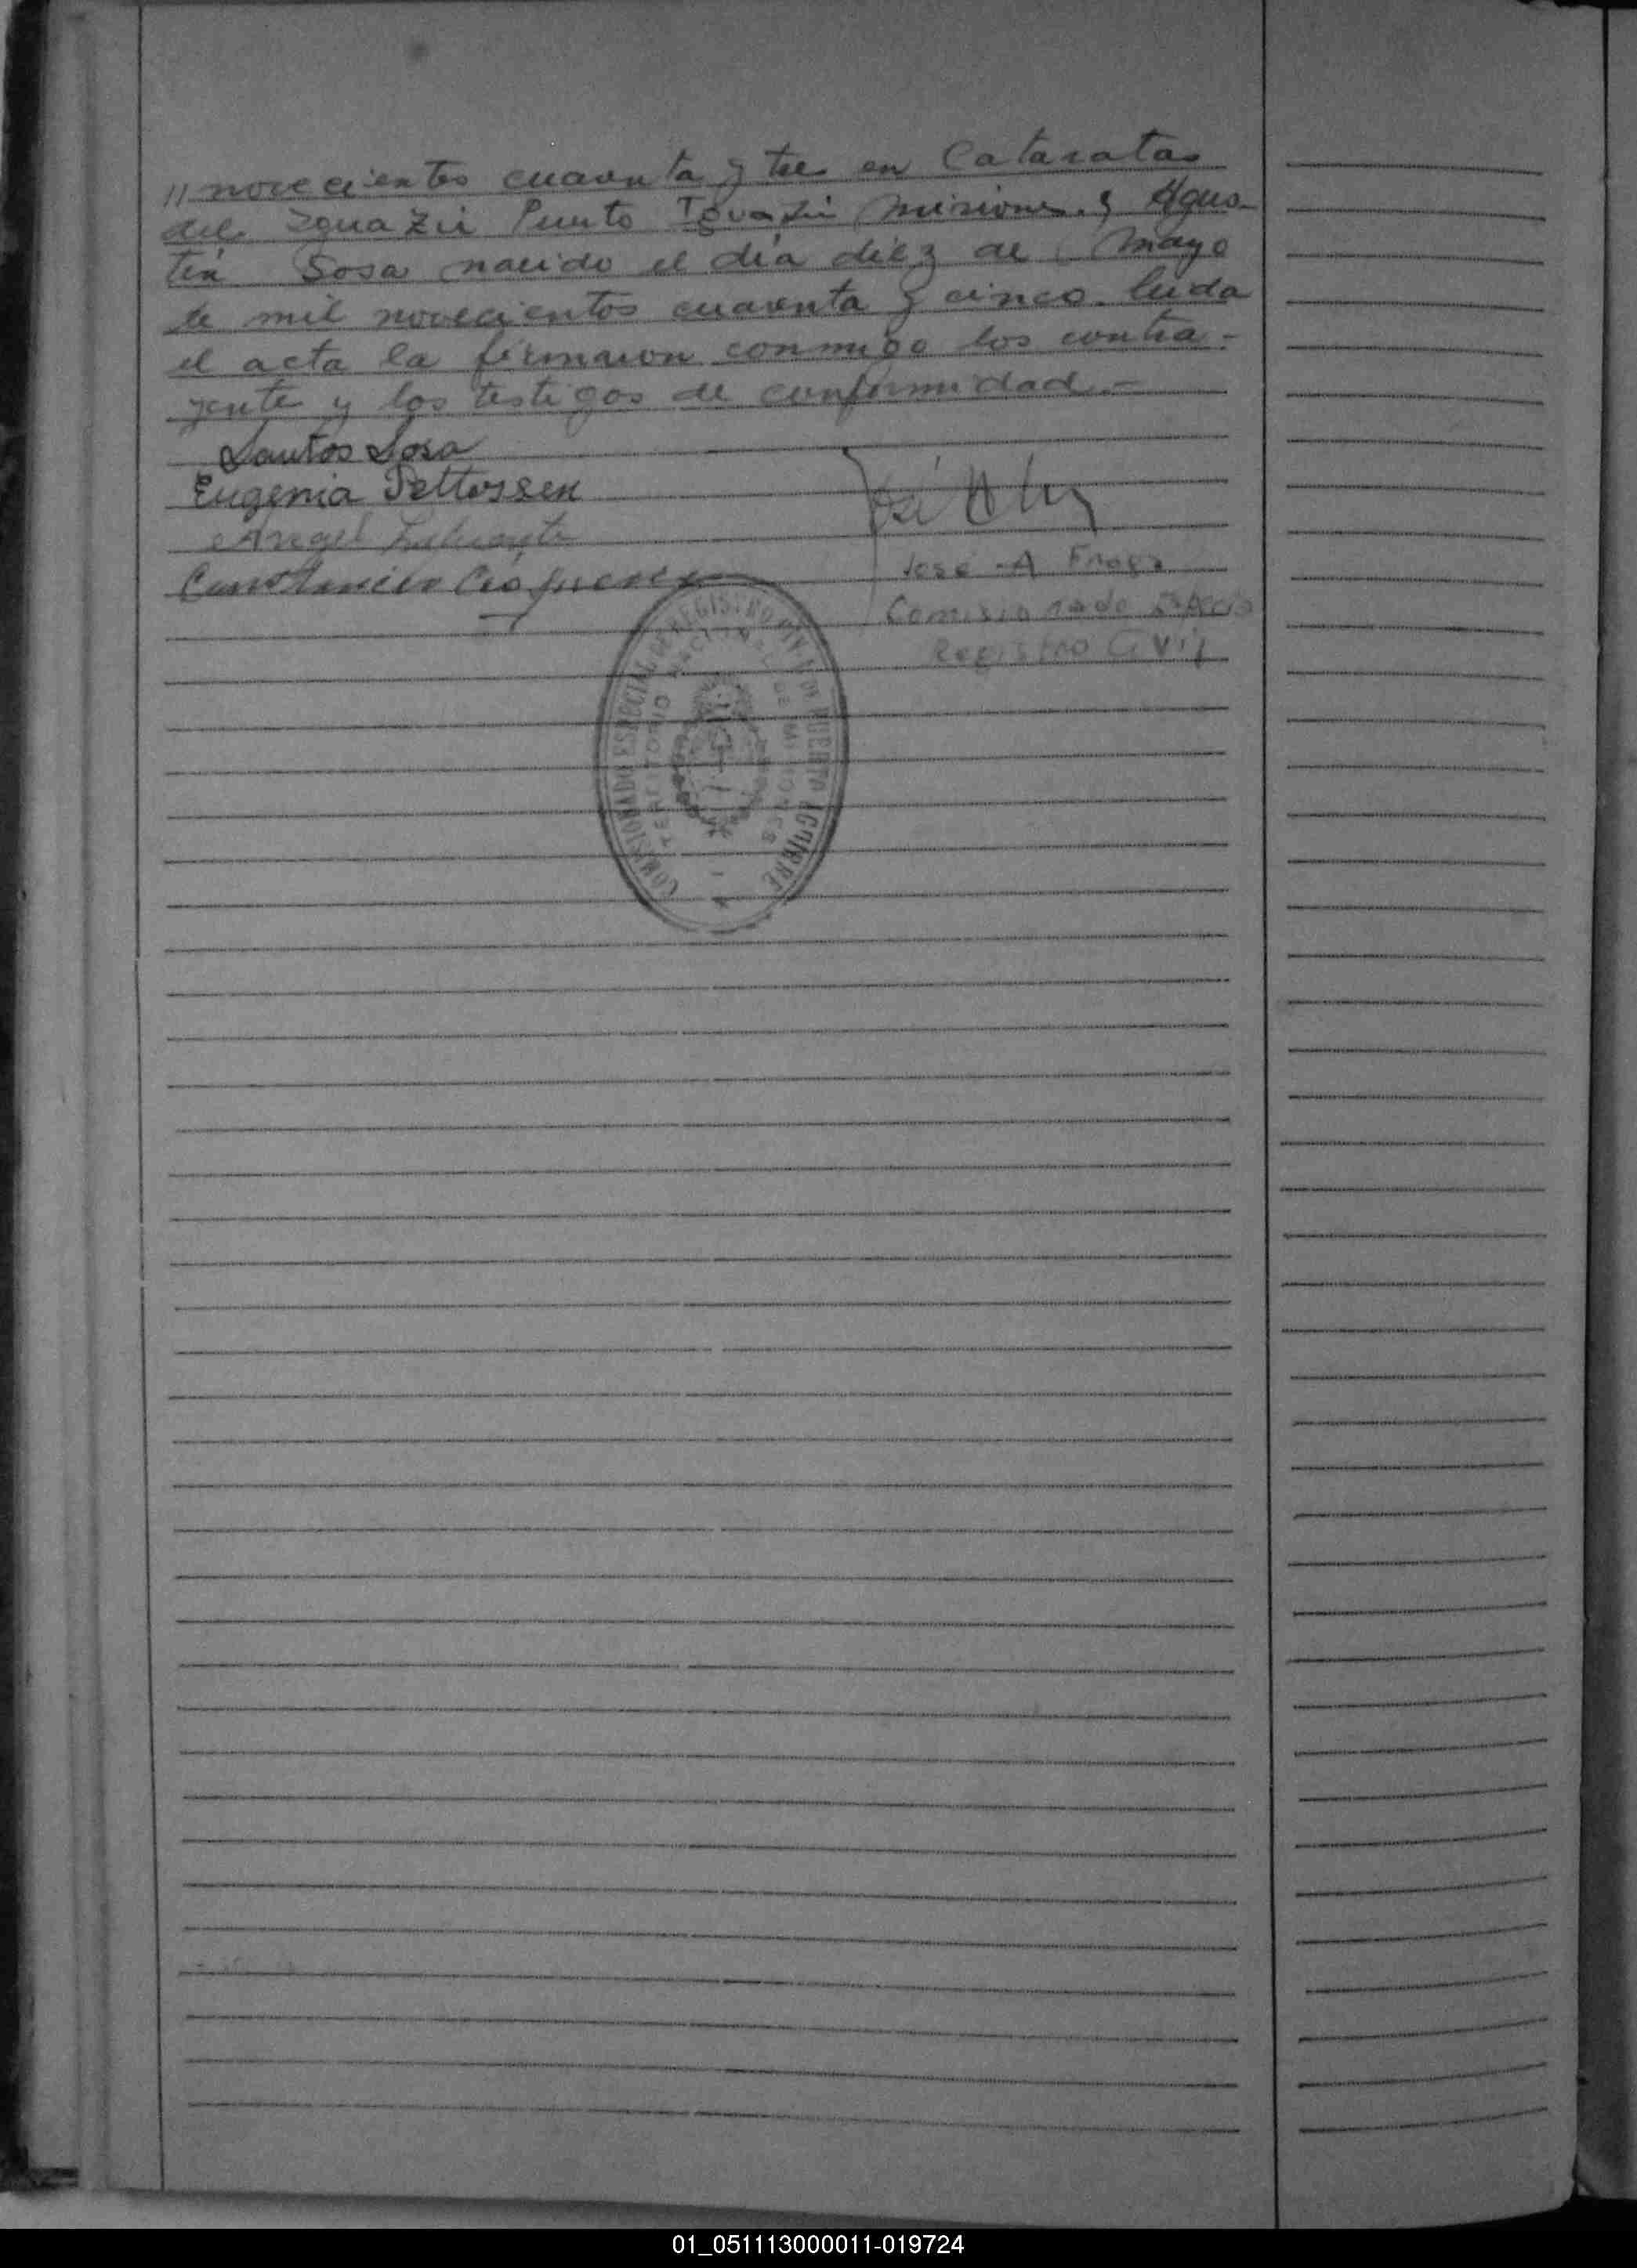 // novecientos cuarenta y tres en Cataratas
del Iguazú Puerto Iguazú Misiones. y Agus-
tin Sosa nacido el día diez de Mayo
de mil novecientos cuarenta y cinco. leida
el acta la firmaron conmigo los contra-
yente y los testigos de conformidad.-
Santos Sosa
Eugenia Pettossen
Angel
José A Fraga
Comisionado Especial
Registro Civil
COMISIONADO ESPECIAL DE REGISTRO CIVIL DE PUERTO AGUIRRE
TERRITORIO NACIONAL DE MISIONES
01_051113000011-019724